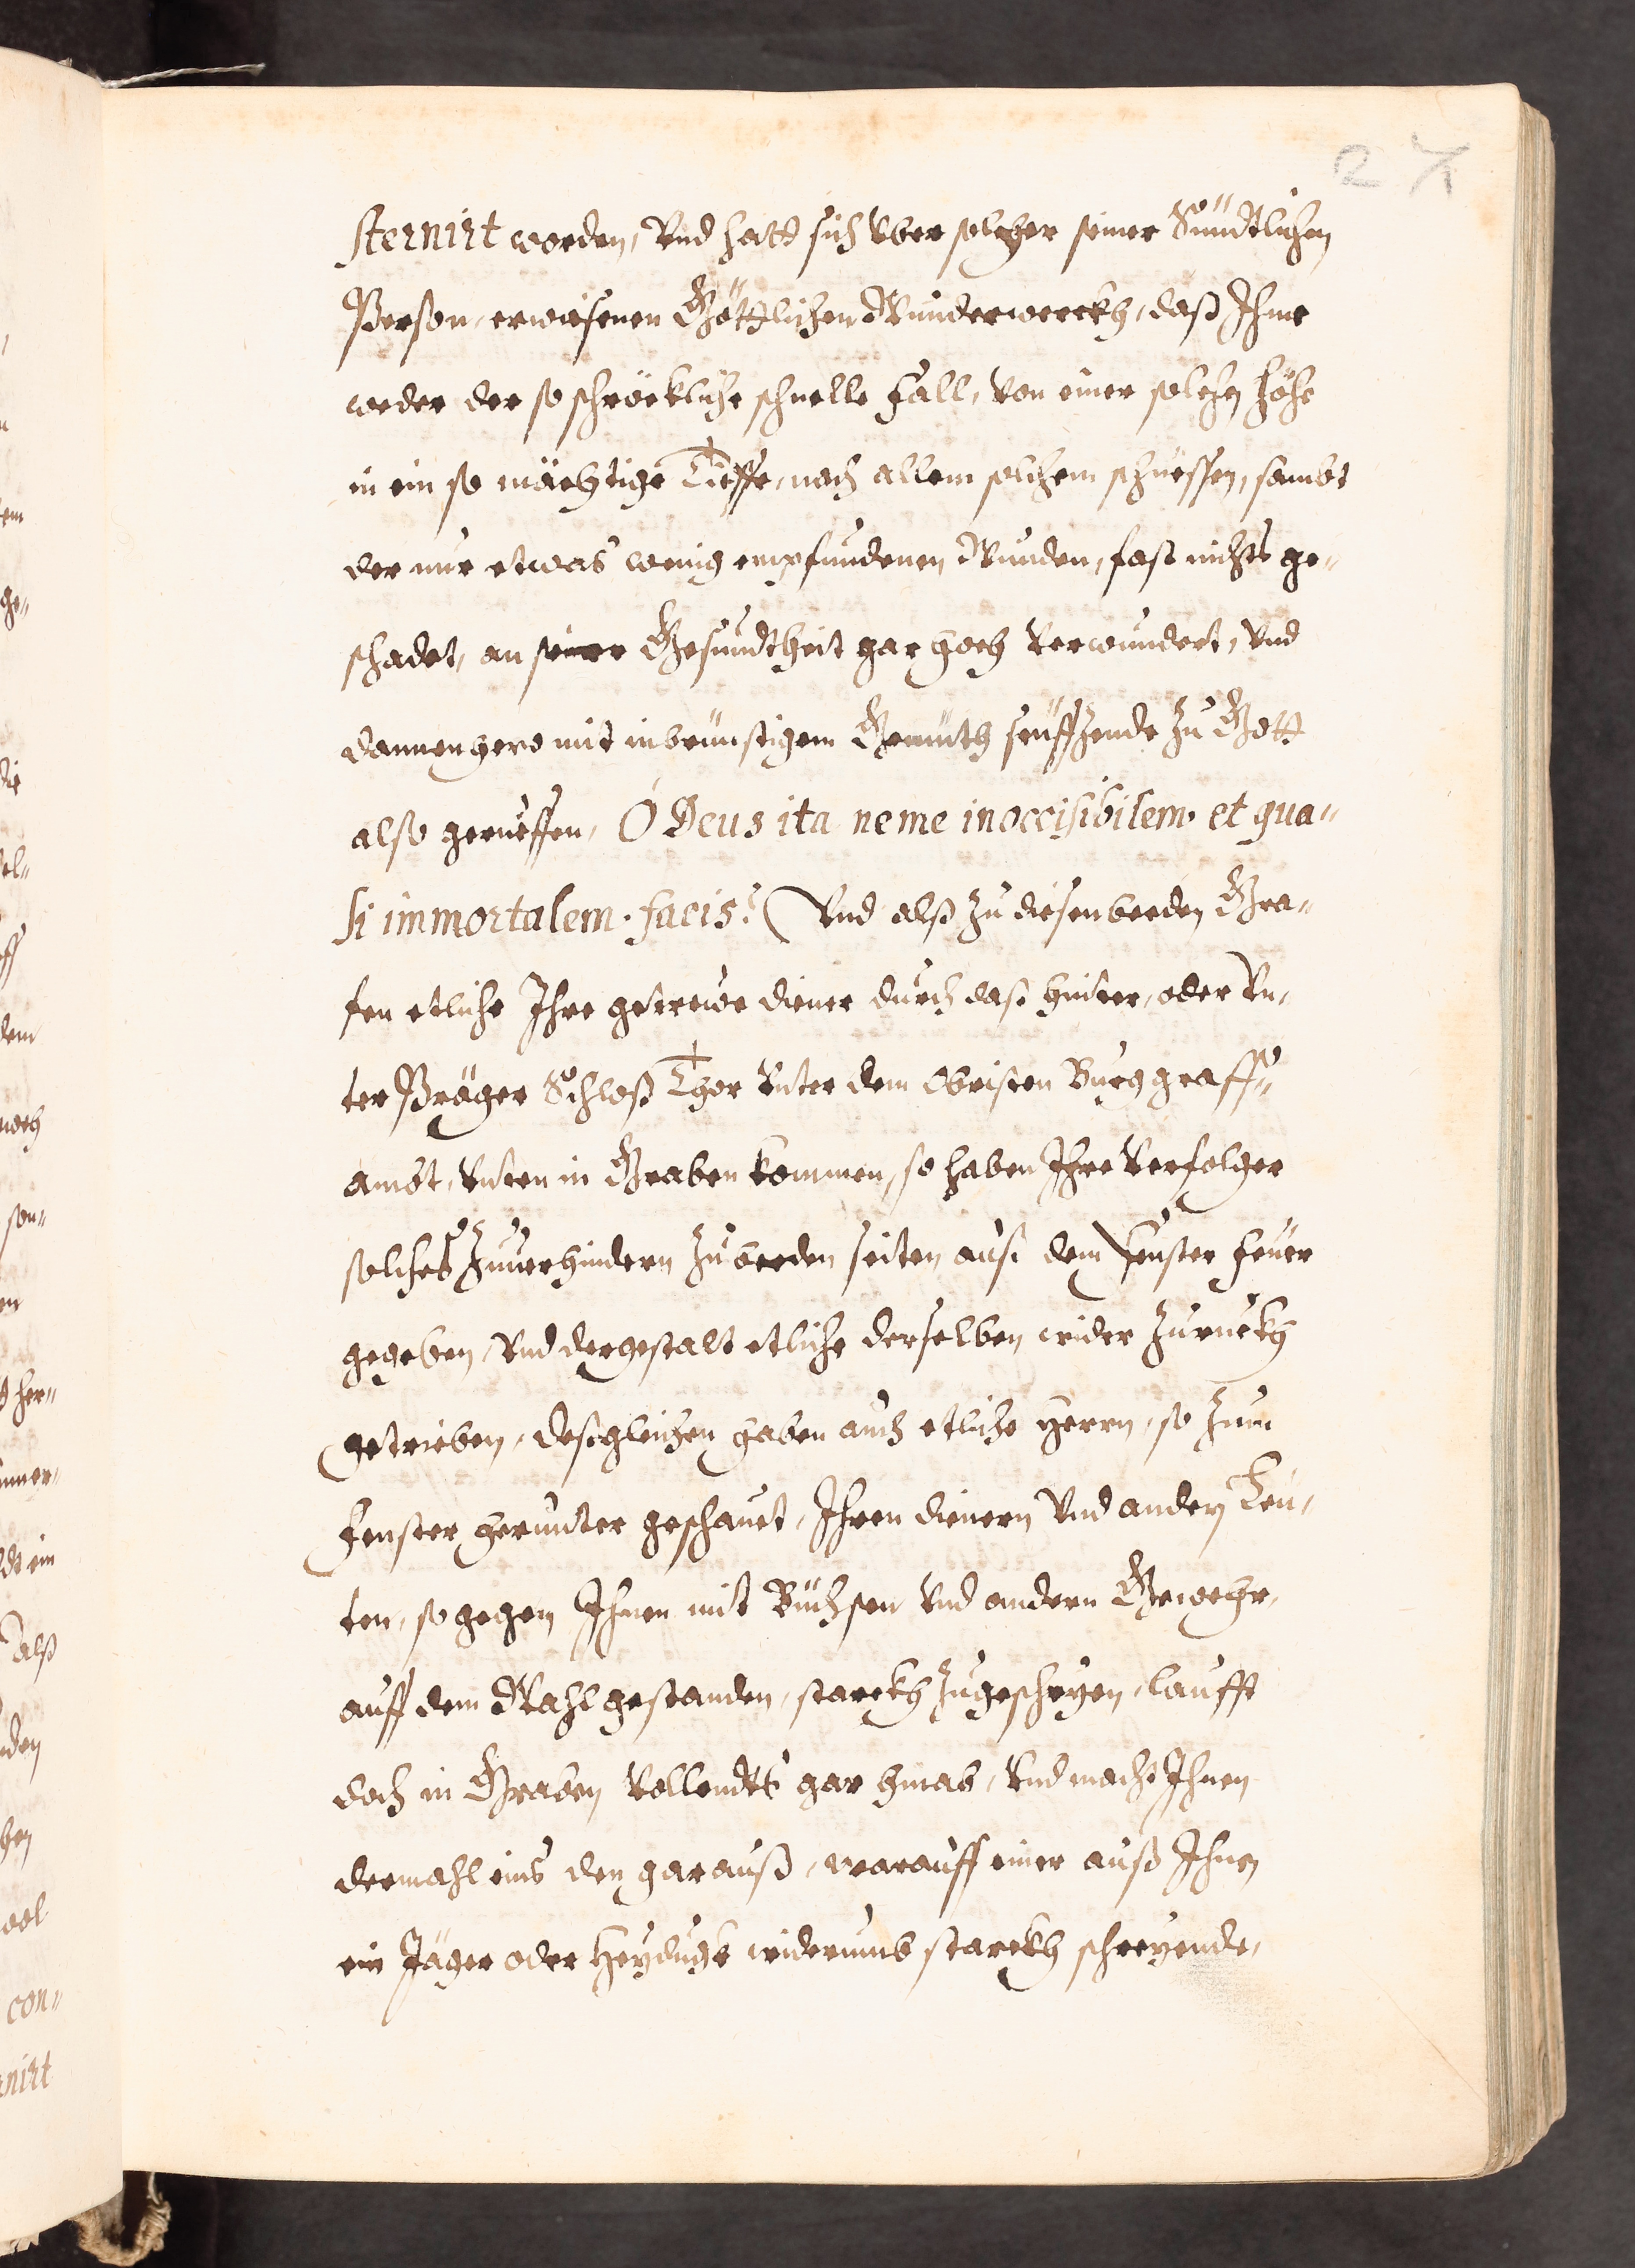 27
sternirt worden, Vnd hatt sich vber solcher seiner Sündtlichen
Person, erwisenen Göttlichen Wunderwerckh, daß Ihme
weder der so schröckliche schnelle Fall, von einer solchen Höhe
in ein so mächtige Tieffe, nach allem solchem schuessen, sambt
der nur etwas wenig empfundenen Wunden, fast nichts ge„
schadet, an seiner Gesundtheit gar hoch verwundert, vnd
dannenhero mit inbrünstigem Gemüth seüffzende zu Gott
also gerueffen, O Deus ita ne me inoccisibilem et qua„
si immortalem facis? Vnd alß zu diesen beeden Gra„
fen etliche Ihre getrewe diener durch daß hinter, oder vn„
ter Präger Schloß Thor vnter dem Obristen Burggraff„
ambt, vnten in Graben kommen, so haben Ihre Verfolger
solches zuuerhindern zu beeden seiten auß dem Fenster feuer
gegeben, vnd dergestalt etliche derselben wider zurückh
getrieben, deßgleichen haben auch etliche Herrn, so zum
Fenster herunter geschauet, Ihren dienern vnd andern Leu„
ten, so gegen Ihnen mit Büchsen vnd andern Gewehr,
auff dem Wahl gestanden, starckh zugeschryen, laufft
doch in Graben vollendts gar hinab, vnd macht Ihnen
dermahl eins den garauß, warauff einer auß Ihnen
ein Jäger oder Heyduckh widerumb starckh schreyende,